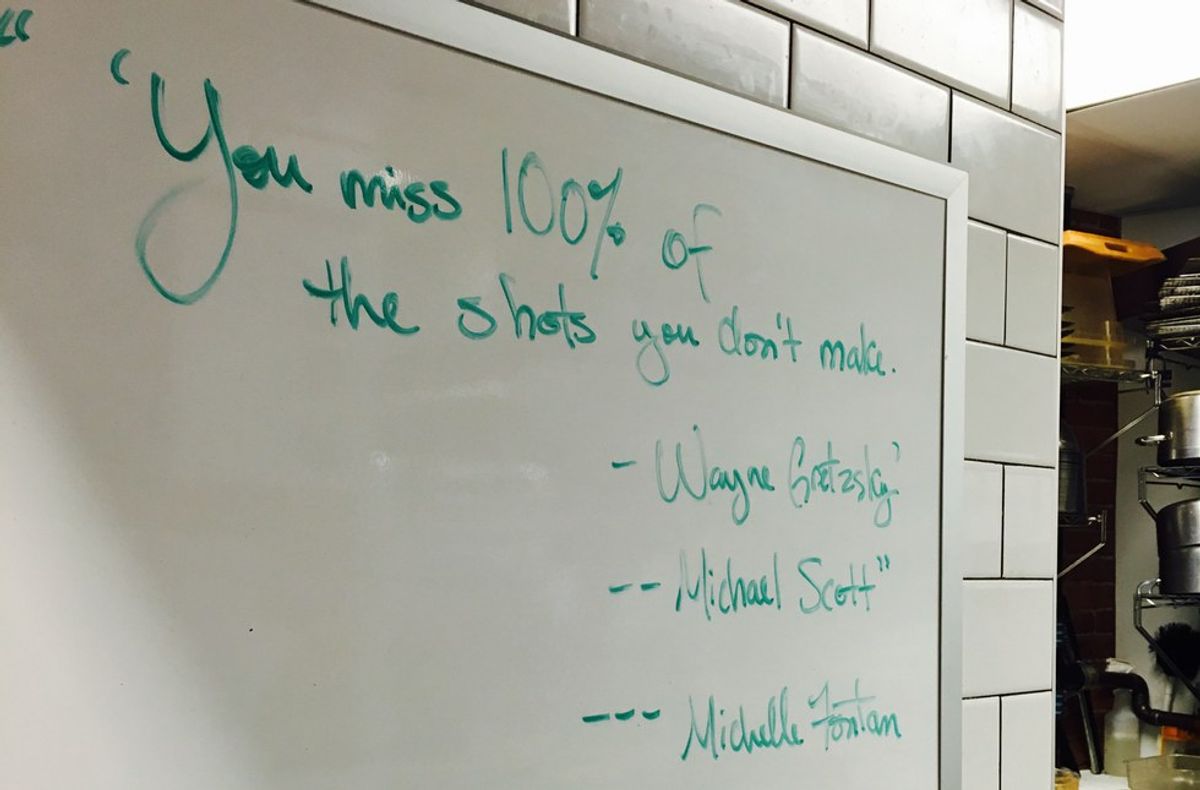 “ ‘You miss 100% of
the shots you don't make.
- Wayne Gretzsky’
-- Michael Scott”
--- Michelle Fontan